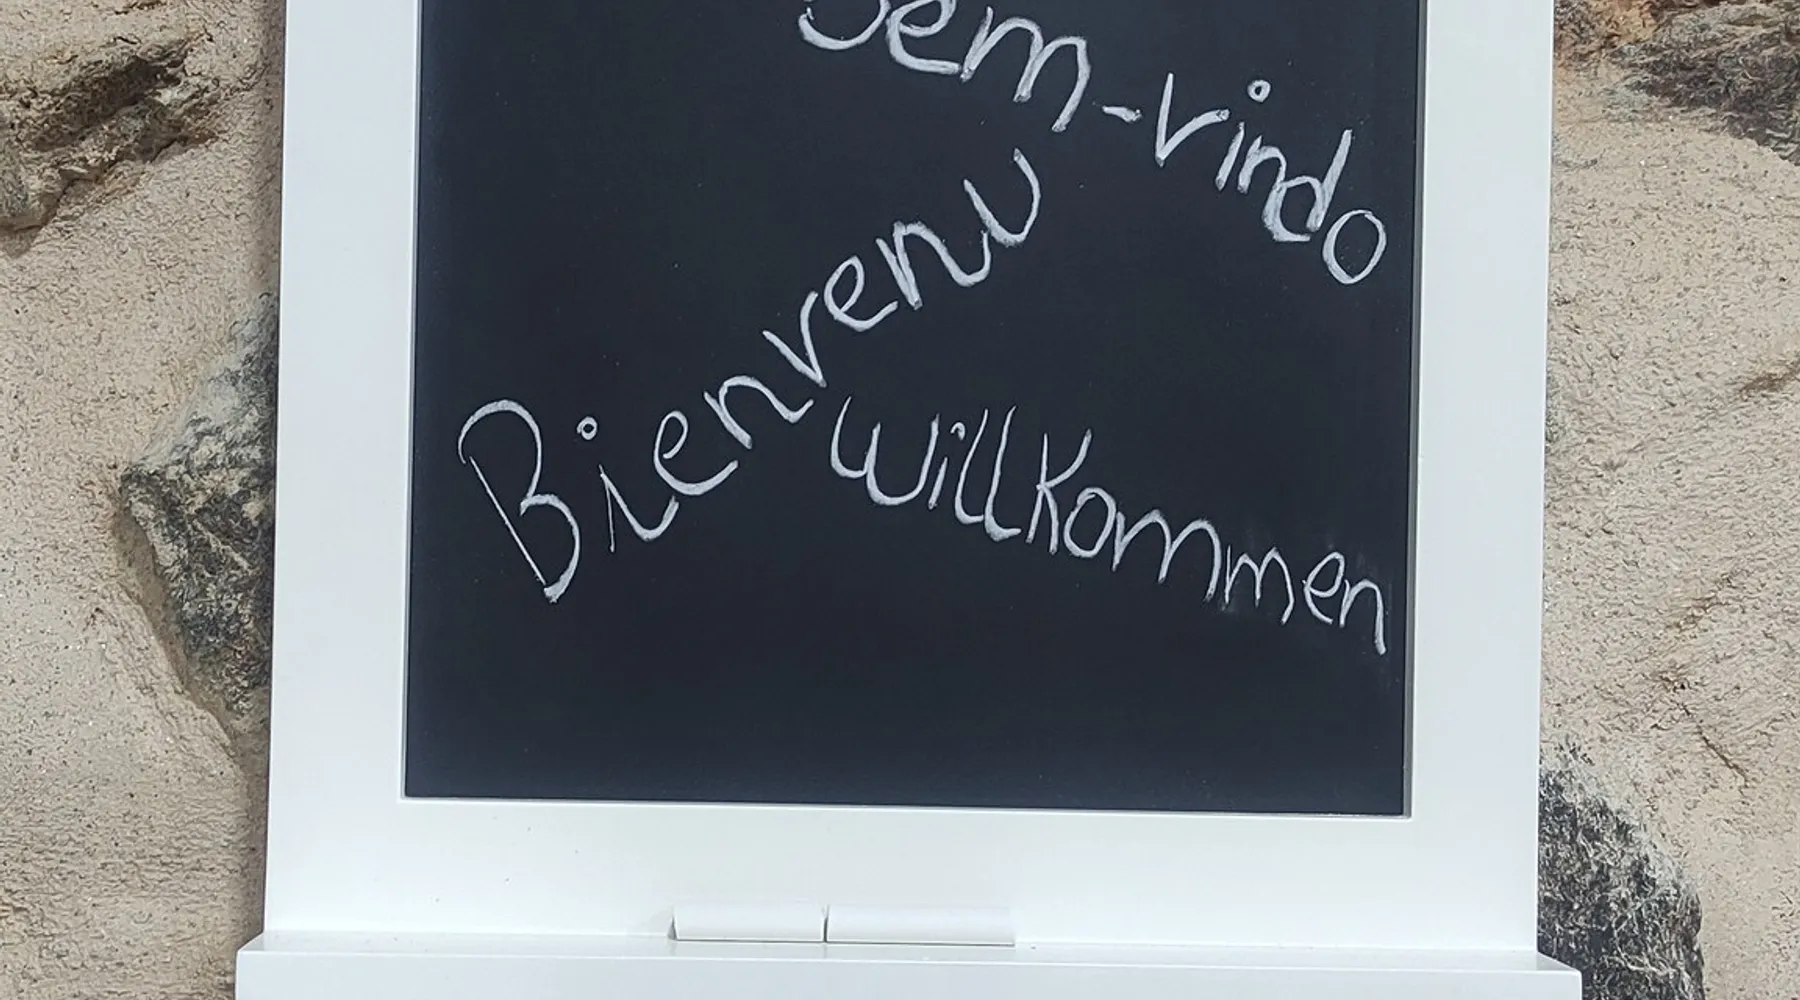 Bem-vindo
Bienvenu
Willkommen